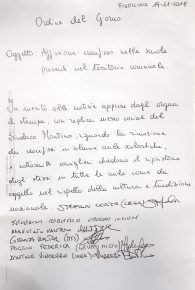 FIUMICINO 19-11-2018
Ordine del Giorno
Oggetto: Affissione crocifisso nelle scuole
presenti nel territorio comunale.
In merito alle notizie apparse dagli organi
di stampa, con replica mezzo social del
Sindaco Montino riguardo la rimozione
dei crocifissi in alcune aule scolastiche,
i sottoscritti consiglieri chiedono il ripristino
degli stessi in tutte le aule come da
oggetto nel rispetto della cultura e tradizione
nazionale. STEFANO COSTA (LEGA)
FEDERICA (GRUPPO MISTO)
D'INTINO VINCENZO (LEGA)